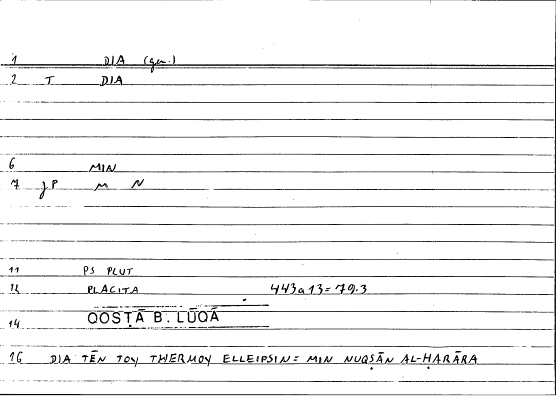 1 DIA (gen.)
2 T DIA
6 MIN
7 JP M N
11 PS PLUT
12 PLACITA 443a13=79.3
14 QOSṬĀ B. LŪQĀ
16 DIA TĒN TOY THERMOY ELLEIPSIN= MIN NUQṢĀN AL-ḤARĀRA